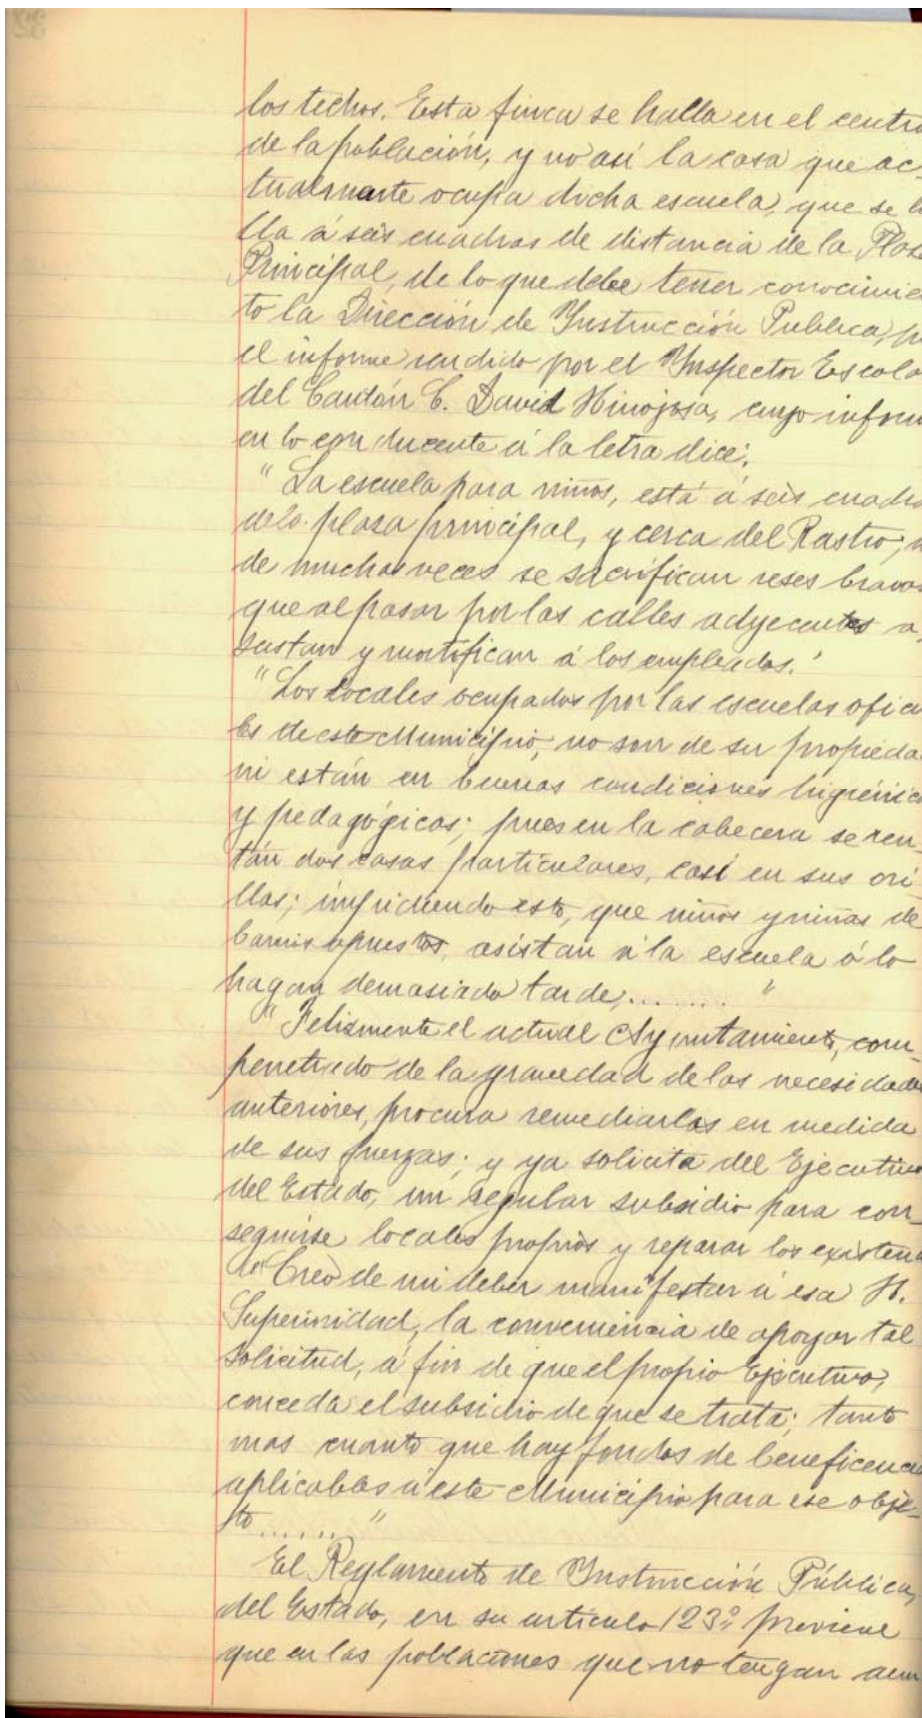 los techos. Esta finca se halla en el centro
de la población, y no así la casa que ac-
tualmente ocupa dicha escuela, que se ha
lla á seis cuadras de distancia de la Plaza
Principal, de lo que debe tener conocimien
to la Dirección de Instrucción Publica, p
el informe rendido por el Inspector Escola
del Cantón C. David Hinojosa, cuyo inform
en lo conducente á la letra dice:
" La escuela para niños, está á seis cuadra
de la plaza principal, y cerca del Rastro,
de muchas veces se sacrifican reses bravas
que al pasar por las calles adyecentes a
sustan y mortifican á los empleados."
"Los locales ocupados por las escuelas oficia
les de este Municipio, no son de su propieda
ni están en buenas condiciones higiénica
y pedagógicas; pues en la cabecera se ren_
tan dos casas particulares, casi en sus ori
llas; impidiendo esto, que niños y niñas de
barrios opuestos, asistan á la escuela ó lo
hagan demasiado tarde,........ "
" Felizmente el actual Ayuntamiento, com_
penetrado de la gravedad de las necesidades
anteriores, procura remediarlas en medida
de sus fuerzas; y ya solicita del Ejecutivo
del Estado, un regular subsidio para con
seguirse locales propios y reparar los existen
Creo de mi deber manifestar á esa H.
Superioridad, la conveniencia de apoyar tal
solicitud, á fin de que el propio Ejecutivo,
conceda el subsidio de que se trata; tanto
mas cuanto que hay fondos de beneficencia
aplicables á este Municipio para ese obje_
to....... "
El Reglamento de Instrucción Pública,
del Estado, en su artículo 123º previene
que en las poblaciones que no tengan aun